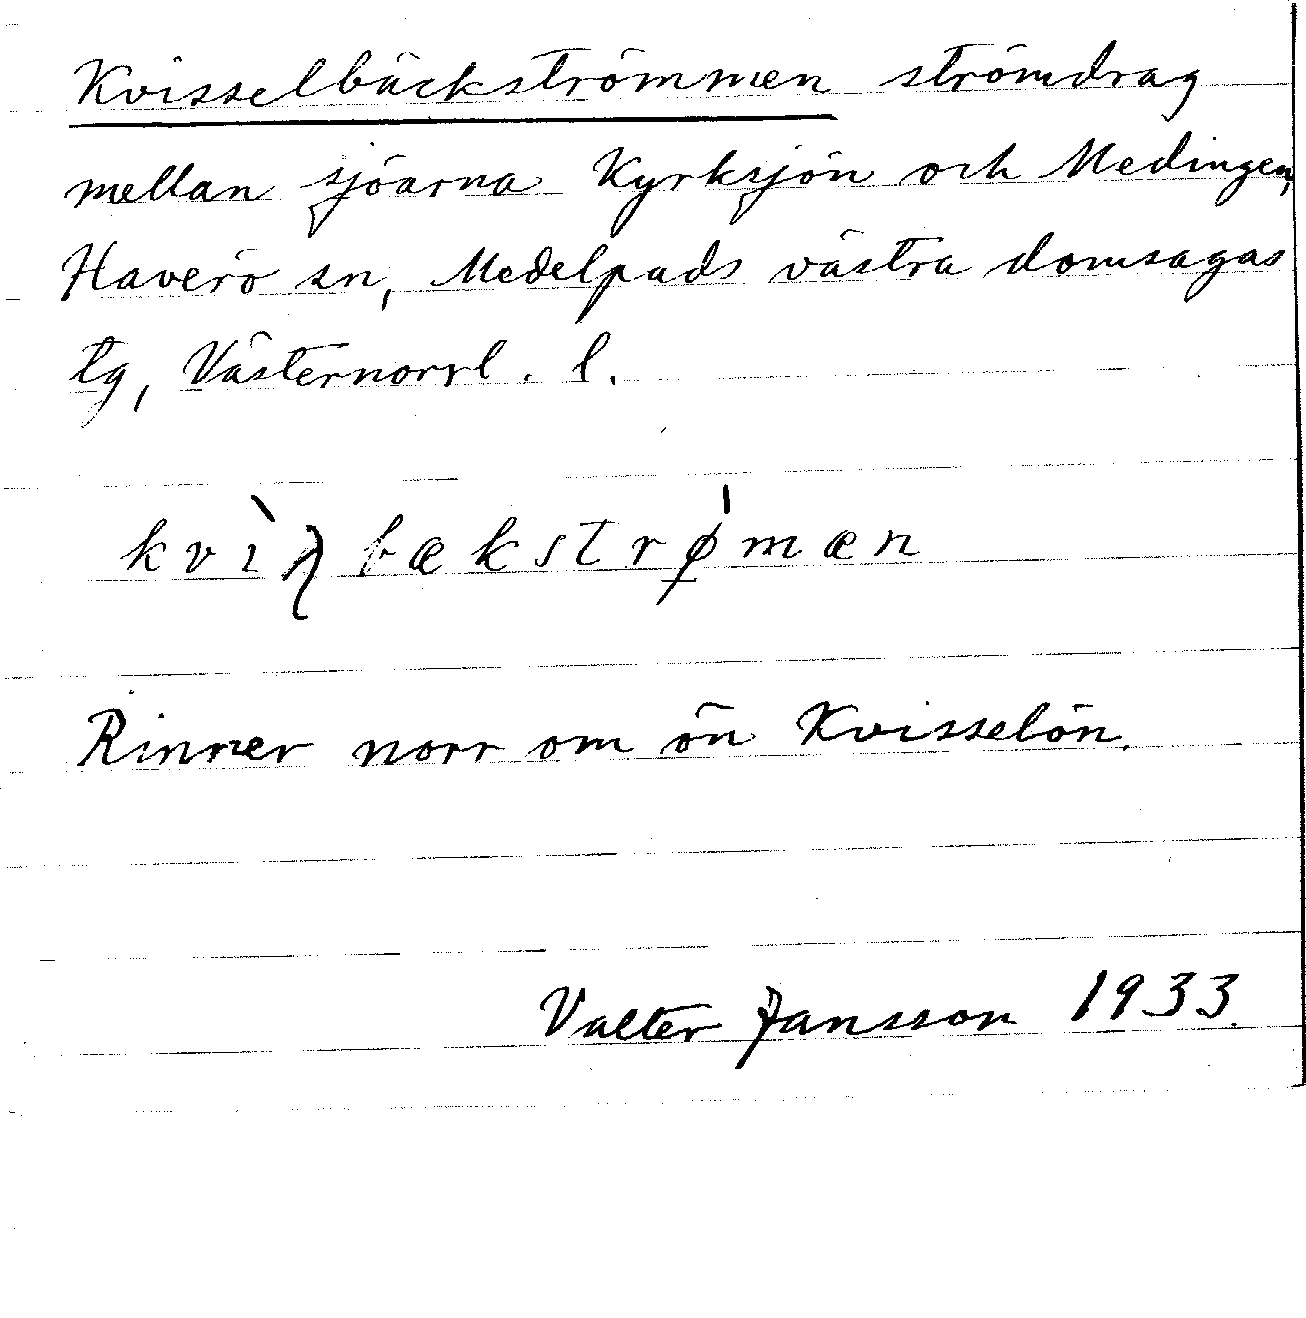 Kvisselbäckströmmen strömdrag
mellan sjöarna Kyrksjön och Medingen,
Haverö sn, Medelpads västra domsagas
tg, Västernorrl. l.
Rinner norr om ön Kvisselön.
Valter Jansson 1933.